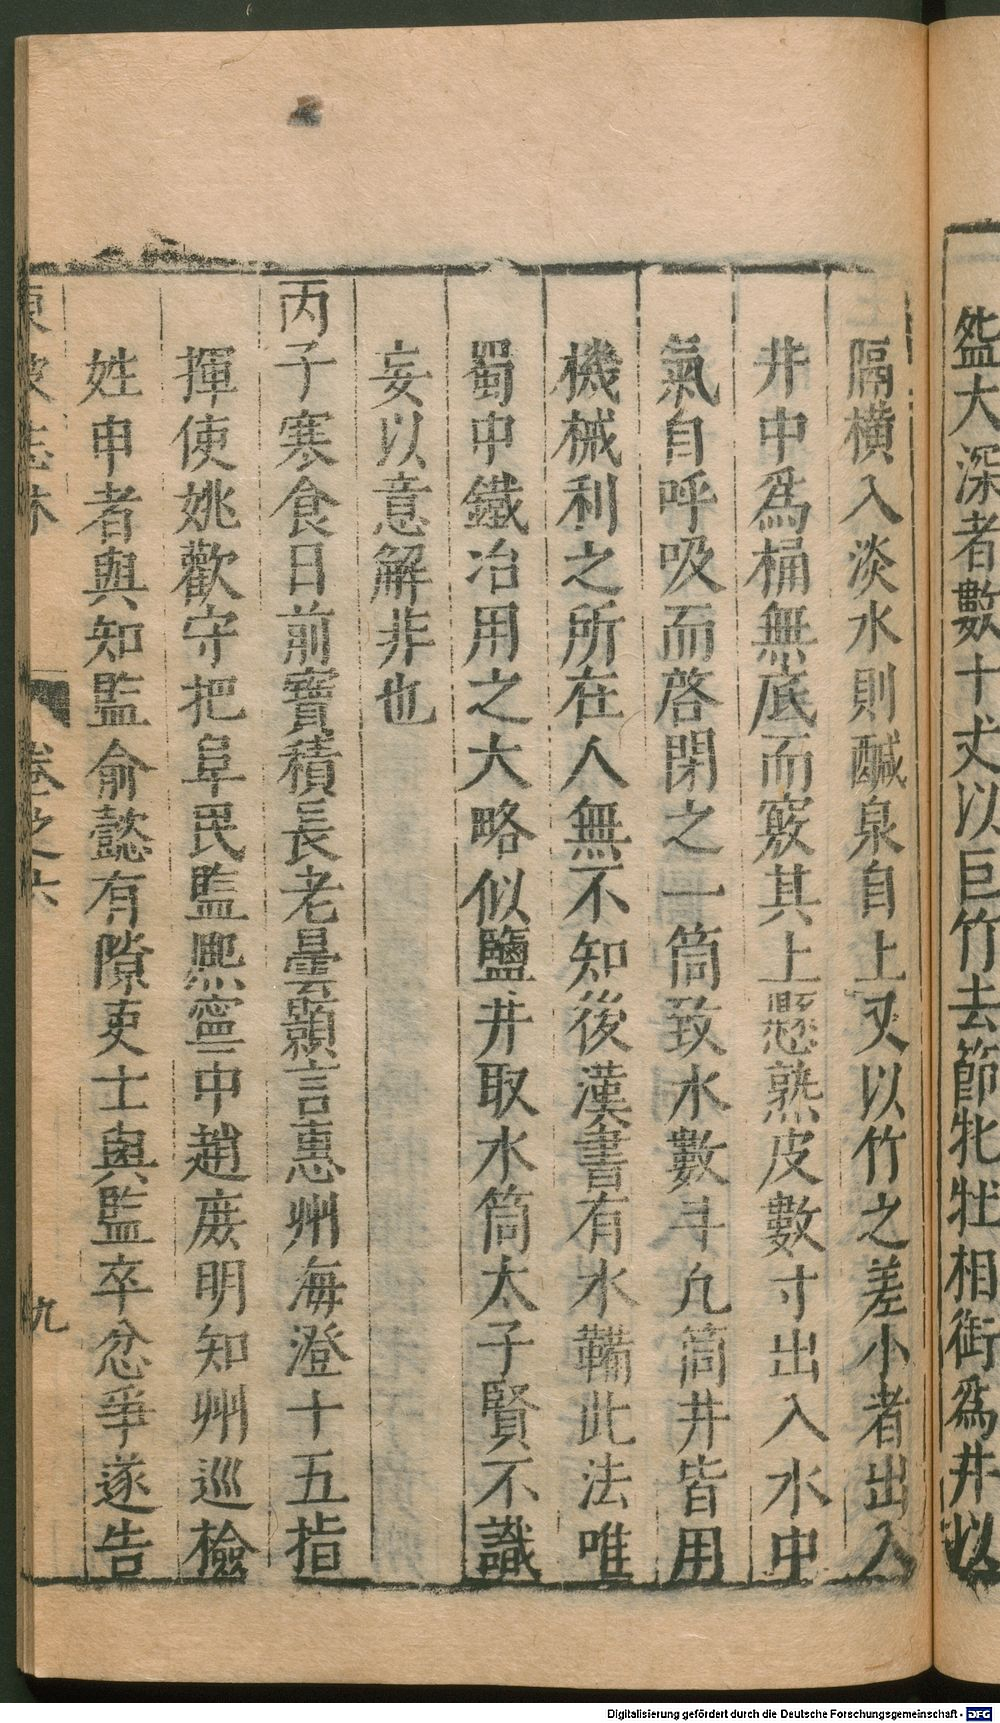 盌大深者數十丈以巨竹去節牝牡相銜爲井以
隔橫入淡水則鹹泉自上又以竹之差小者出入
井中爲桶無底而竅其上懸熟皮數寸出入水中
氣自呼吸而啓閉之一筒致水數斗凢筒井皆用
機械利之所在人無不知後漢書有水鞴此法唯
蜀中鐵冶用之大略似鹽井取水筒太子賢不識
妄以意解非也
丙子寒食日前寶積長老曇顥言惠州海澄十五指
揮使姚歡守把阜民監熈寧中趙庻明知州巡檢
姓申者與知監俞懿有隙吏士與監卒忿爭遂告
東坡志林
卷之六
九
Digitalisierung gefördert durch die Deutsche Forschungsgemeinschaft - DFG